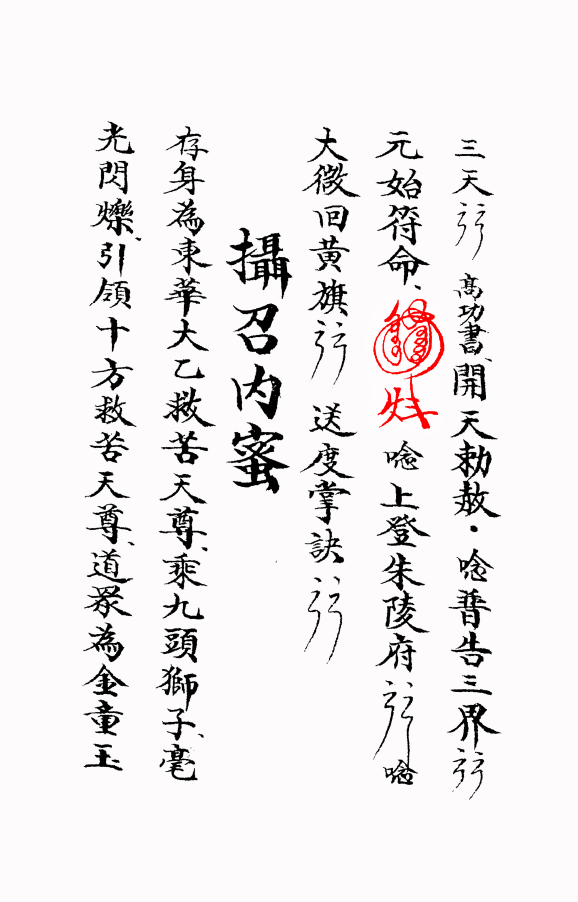 三天 高功書開天勅赦・唸普告三界
元始符命、唸上登朱陵府 唸
大微回黃旗 送度掌訣
攝召內蜜
存身為東華大乙救苦天尊、乘九頭獅子、毫
光閃爍、引領十方救苦天尊、道眾為金童玉